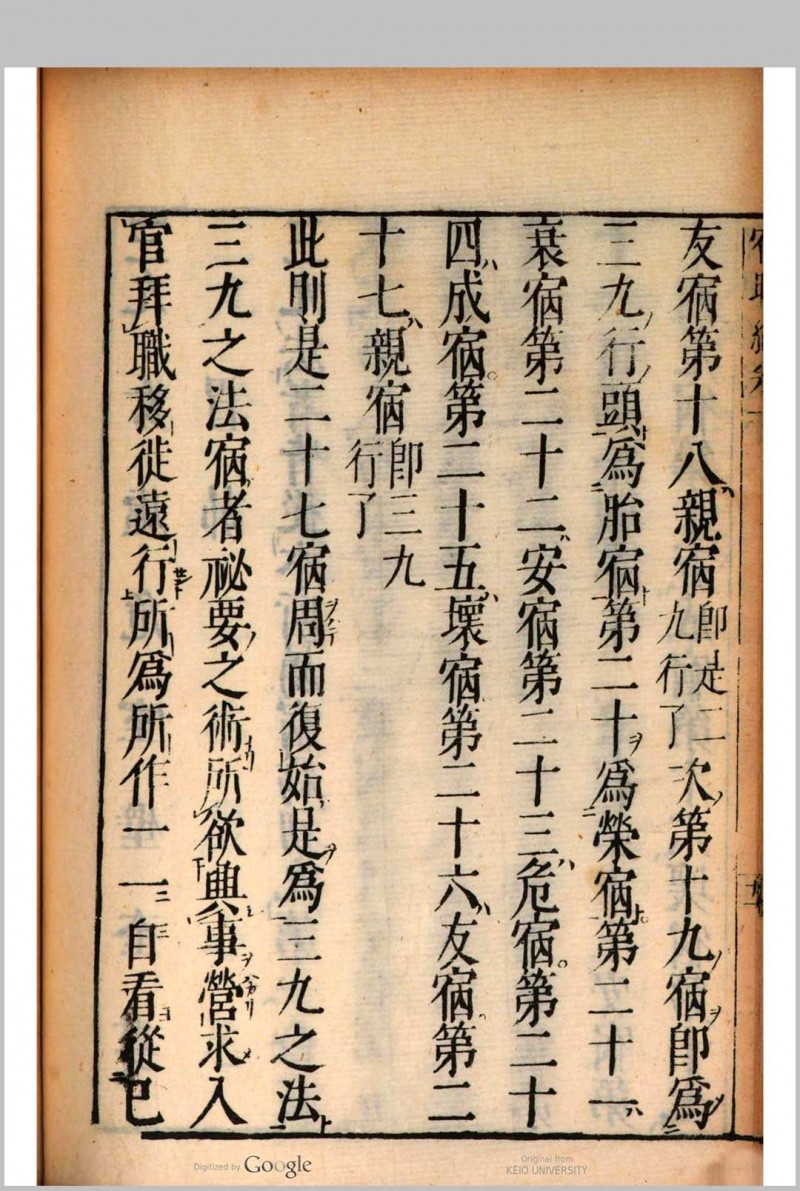 友宿第十八親宿即是二九行了次第十九宿即爲
三九行頭爲胎宿第二十爲榮宿第二十一
衰宿第二十二安宿第二十三危宿第二十
四成宿第二十五壞宿第二十六友宿第二
十七親宿即三九行了
此則是二十七宿周而復始是爲三九之法
三九之法宿者祕要之術所欲興事營求入
官拜職移徙遠行所爲所作一一自看從已
Digitized by Google
Original from
KEIO UNIVERSITY